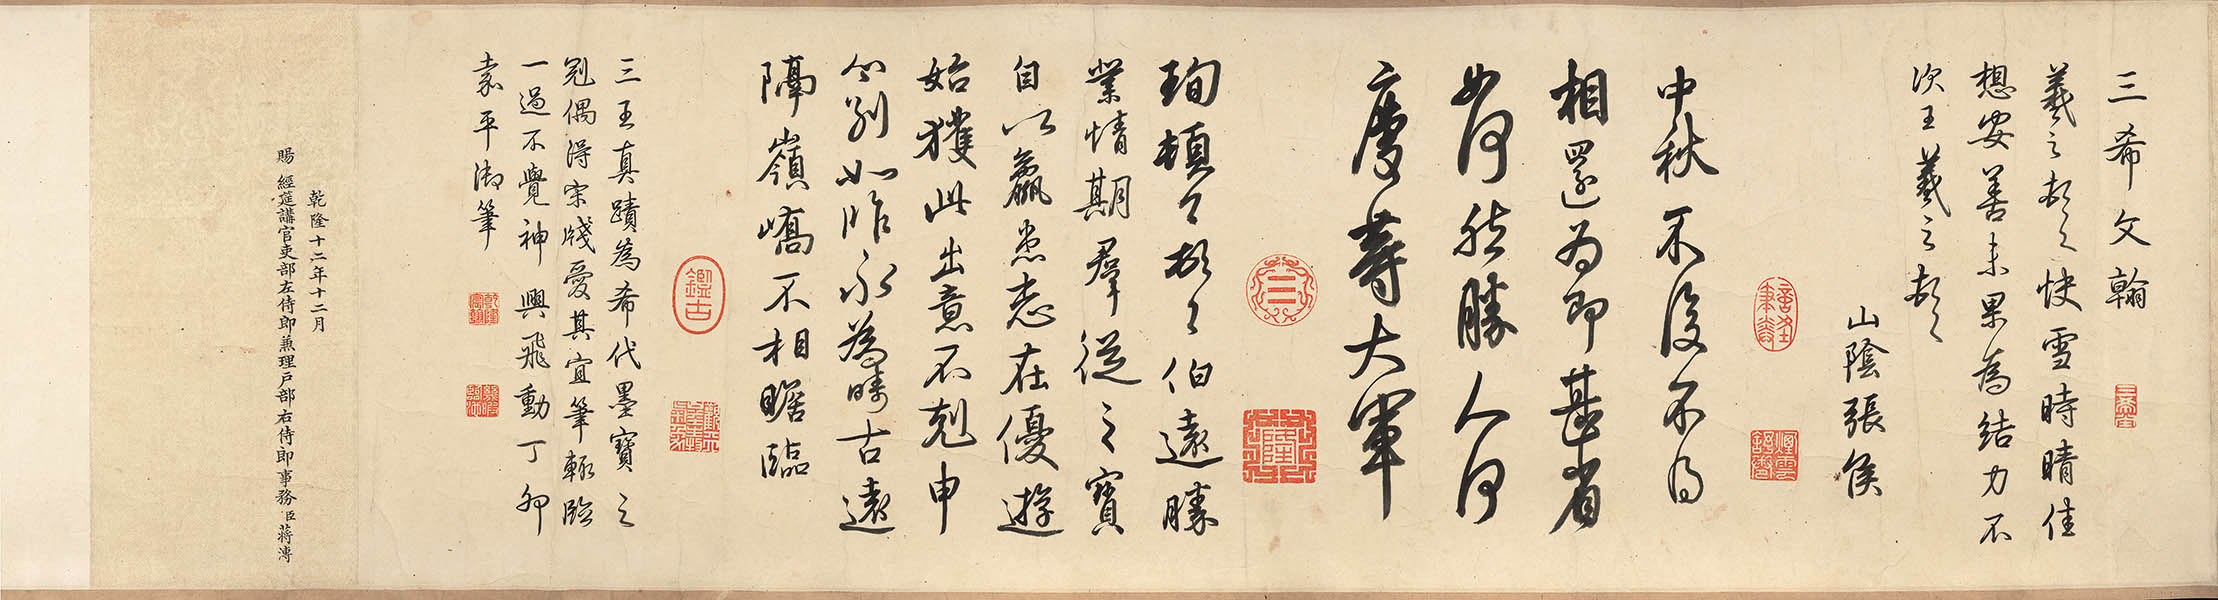 三希文翰
三希堂
羲之頓首快雪時晴佳
想安善未果為結力不
次王羲之頓首
山陰張侯
中秋不復不得
相還為即甚省
如何然勝人何
慶等大軍
隆
珣頓首頓首伯遠勝
業情期羣從之寶
自以羸患志在優遊
始獲此出意不剋申
分別如昨永為疇古遠
隔嶺嶠不相瞻臨
鑑古
三王真蹟為希代墨寶之
冠偶得宋牋愛其宜筆輒臨
一過不覺神興飛動丁卯
嘉平御筆
乾隆宸翰
乾隆十二年十二月
賜 經筵講官吏部左侍郎兼理戶部右侍郎事務臣蔣溥